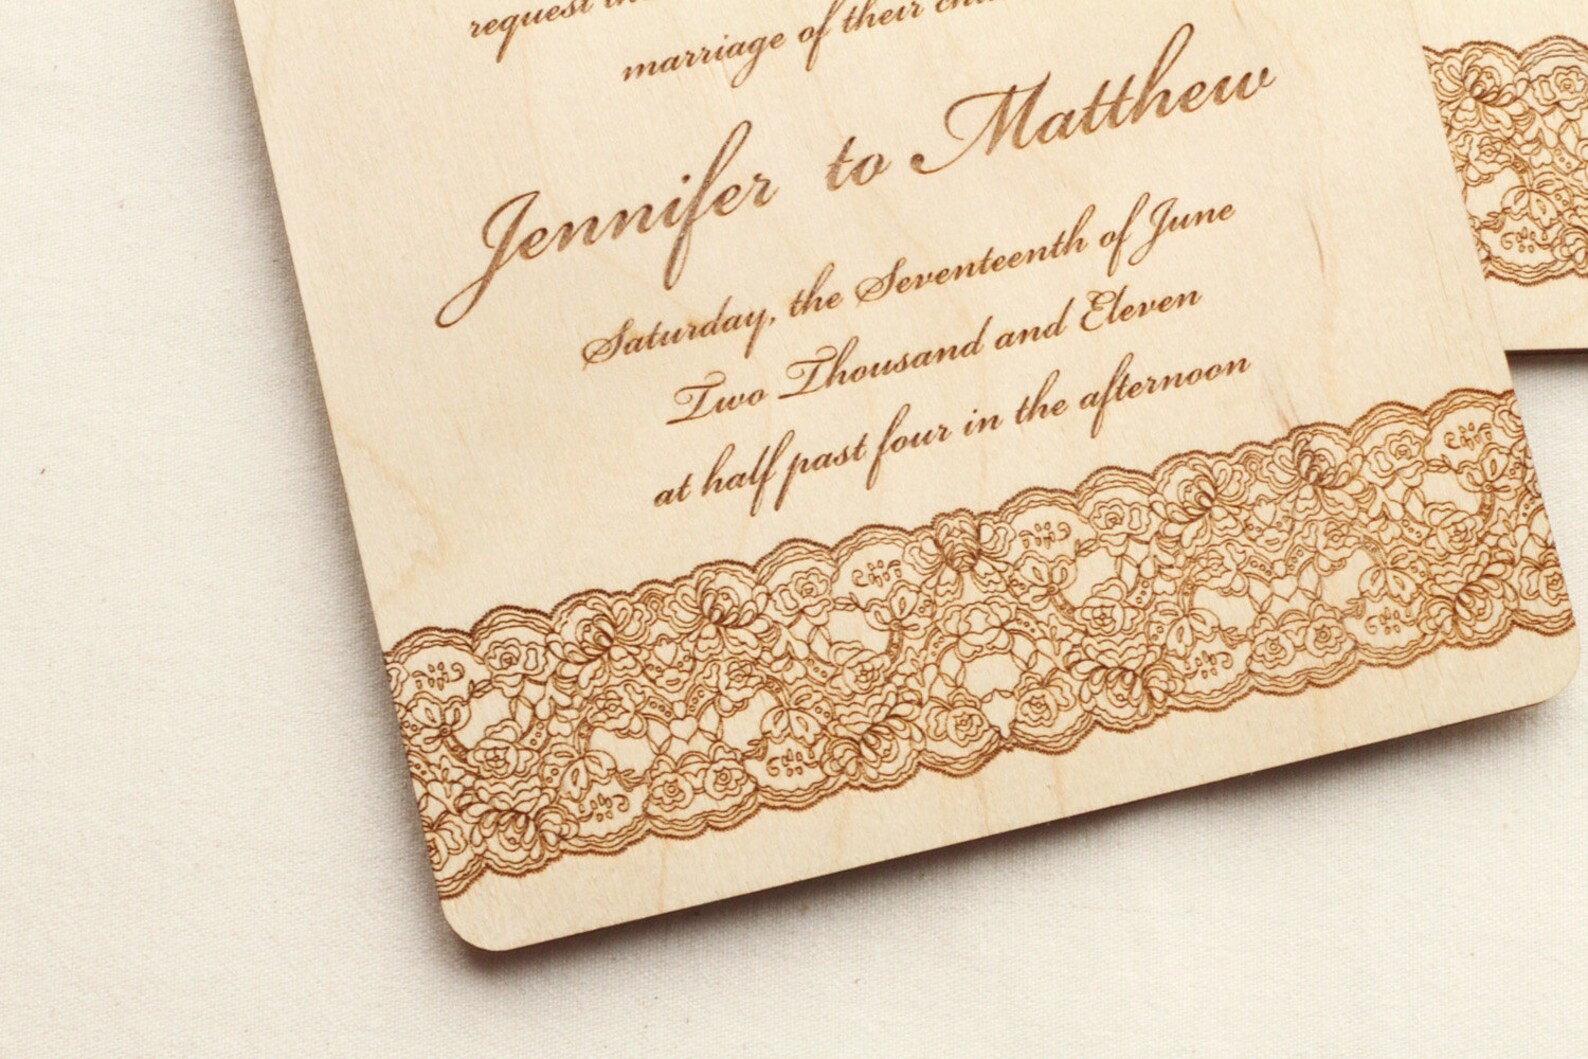 request
marriage of their
Jennifer to Matthew
Saturday, the Seventeenth of June
Two Thousand and Eleven
at half past four in the afternoon